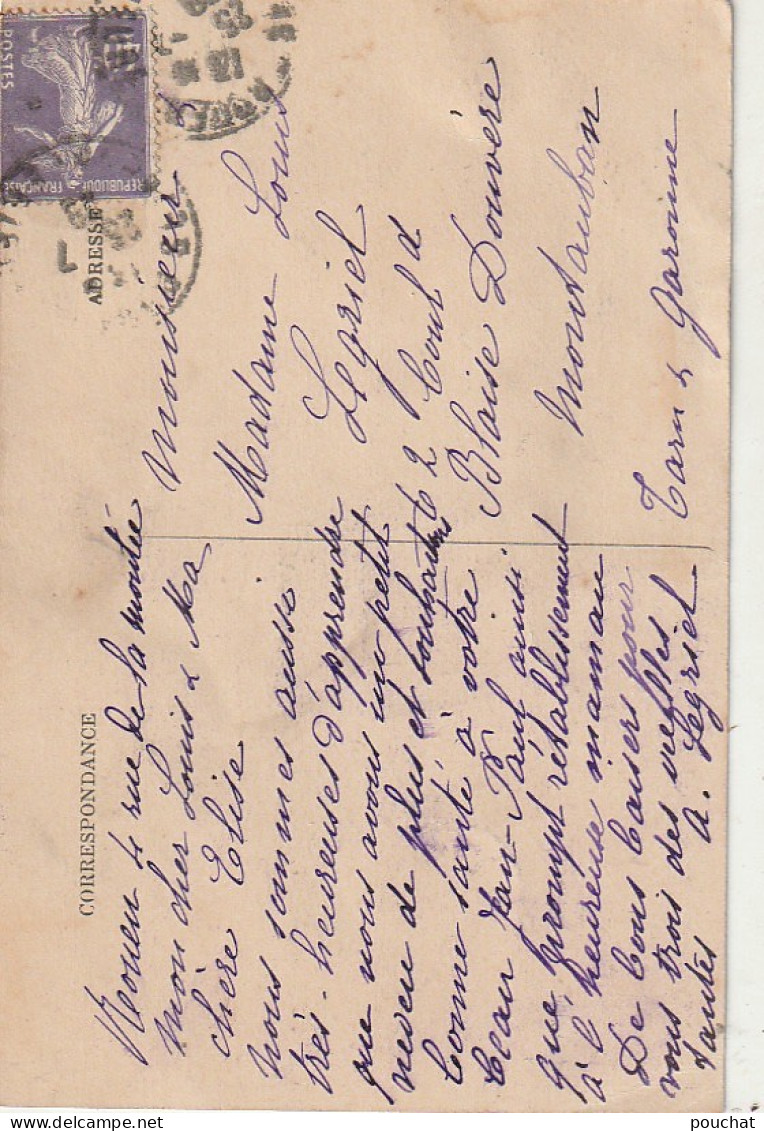 CORRESPONDANCE
Rouen 4 rue de la
mon cher Louis & Ma
chère Elise
nous sommes aussi
très-heureuses d'apprendre
que nous avons un petit
neveu de plus et souhaitons
bonne santé à votre
beau Jean-Paul ainsi
que prompt rétablissement
à l'heureuse maman
De bons baisers pour
vous trois des vieilles
tantes A. Legriel
ADRESSE
Monsieur &
Madame Louis
Legriel
62 Boul d
Blaise Douvère
Montauban
Tarn & Garonne
POSTES
REPUBLIQUE FRANÇAISE
pouchat